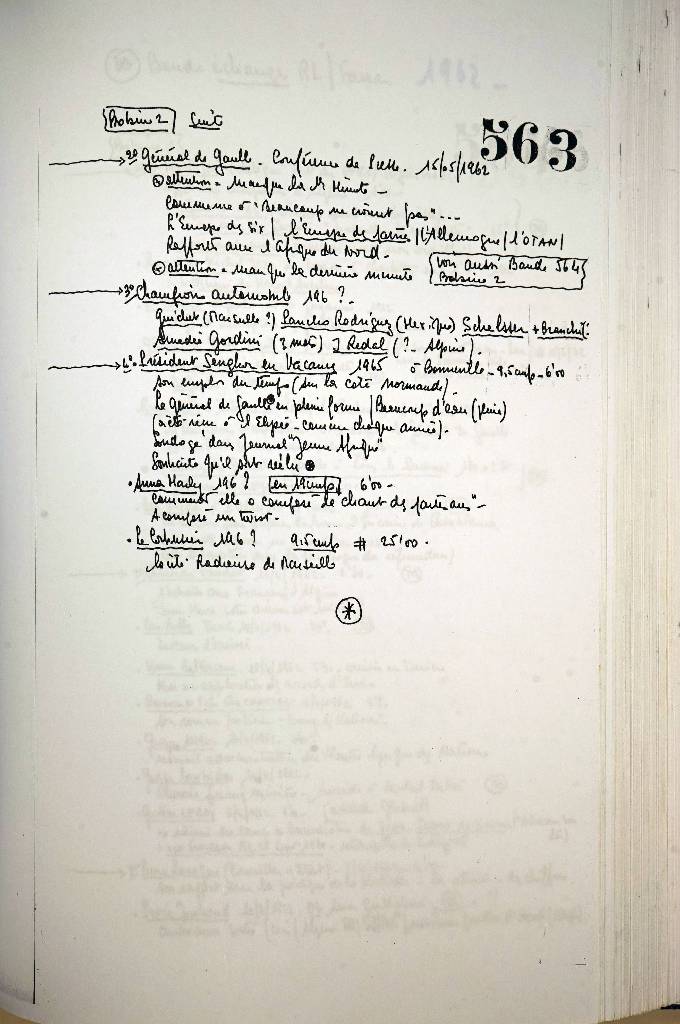 Bobine 2 Suite
563
2° Général de Gaulle. Conférence de Presse. 15/05/1962
attention = manque la 1re Minute -
Commence à "Beaucoup ne croient pas" ...
L'Europe des Six / l'Europe des patries / L'Allemagne / l'OTAN /
Rapports avec l'Afrique du Nord.
attention = manque la dernière minute
voir aussi Bande 564
Bobine 2
3° Champions automobile 196 ?
Guichet (Marseille ?) Rodriguez (Mexique) Schelsser +
Amedée Gordini (3 mots) J Redel (? - Alpine).
4° Président Senghor en Vacances 1965 à Bonneville - 9,5 cm/s - 6'00
son emploi du temps (sur la côte normande)
Le Général de Gaulle en pleine forme / Beaucoup d'eau (pluie)
à l'Elysée - comme chaque année).
Sondage dans Journal "Jeune Afrique"
Souhaite qu'il soit réélu
• Anna Marly 196 ? en 19 cm/s 6'00 -
Comment elle a composé "le chant des partisans" -
A composé un twist.
• Le Corbusier 196 ? 9,5 cm/s # 25'00 -
la cité Radieuse de Marseille
*